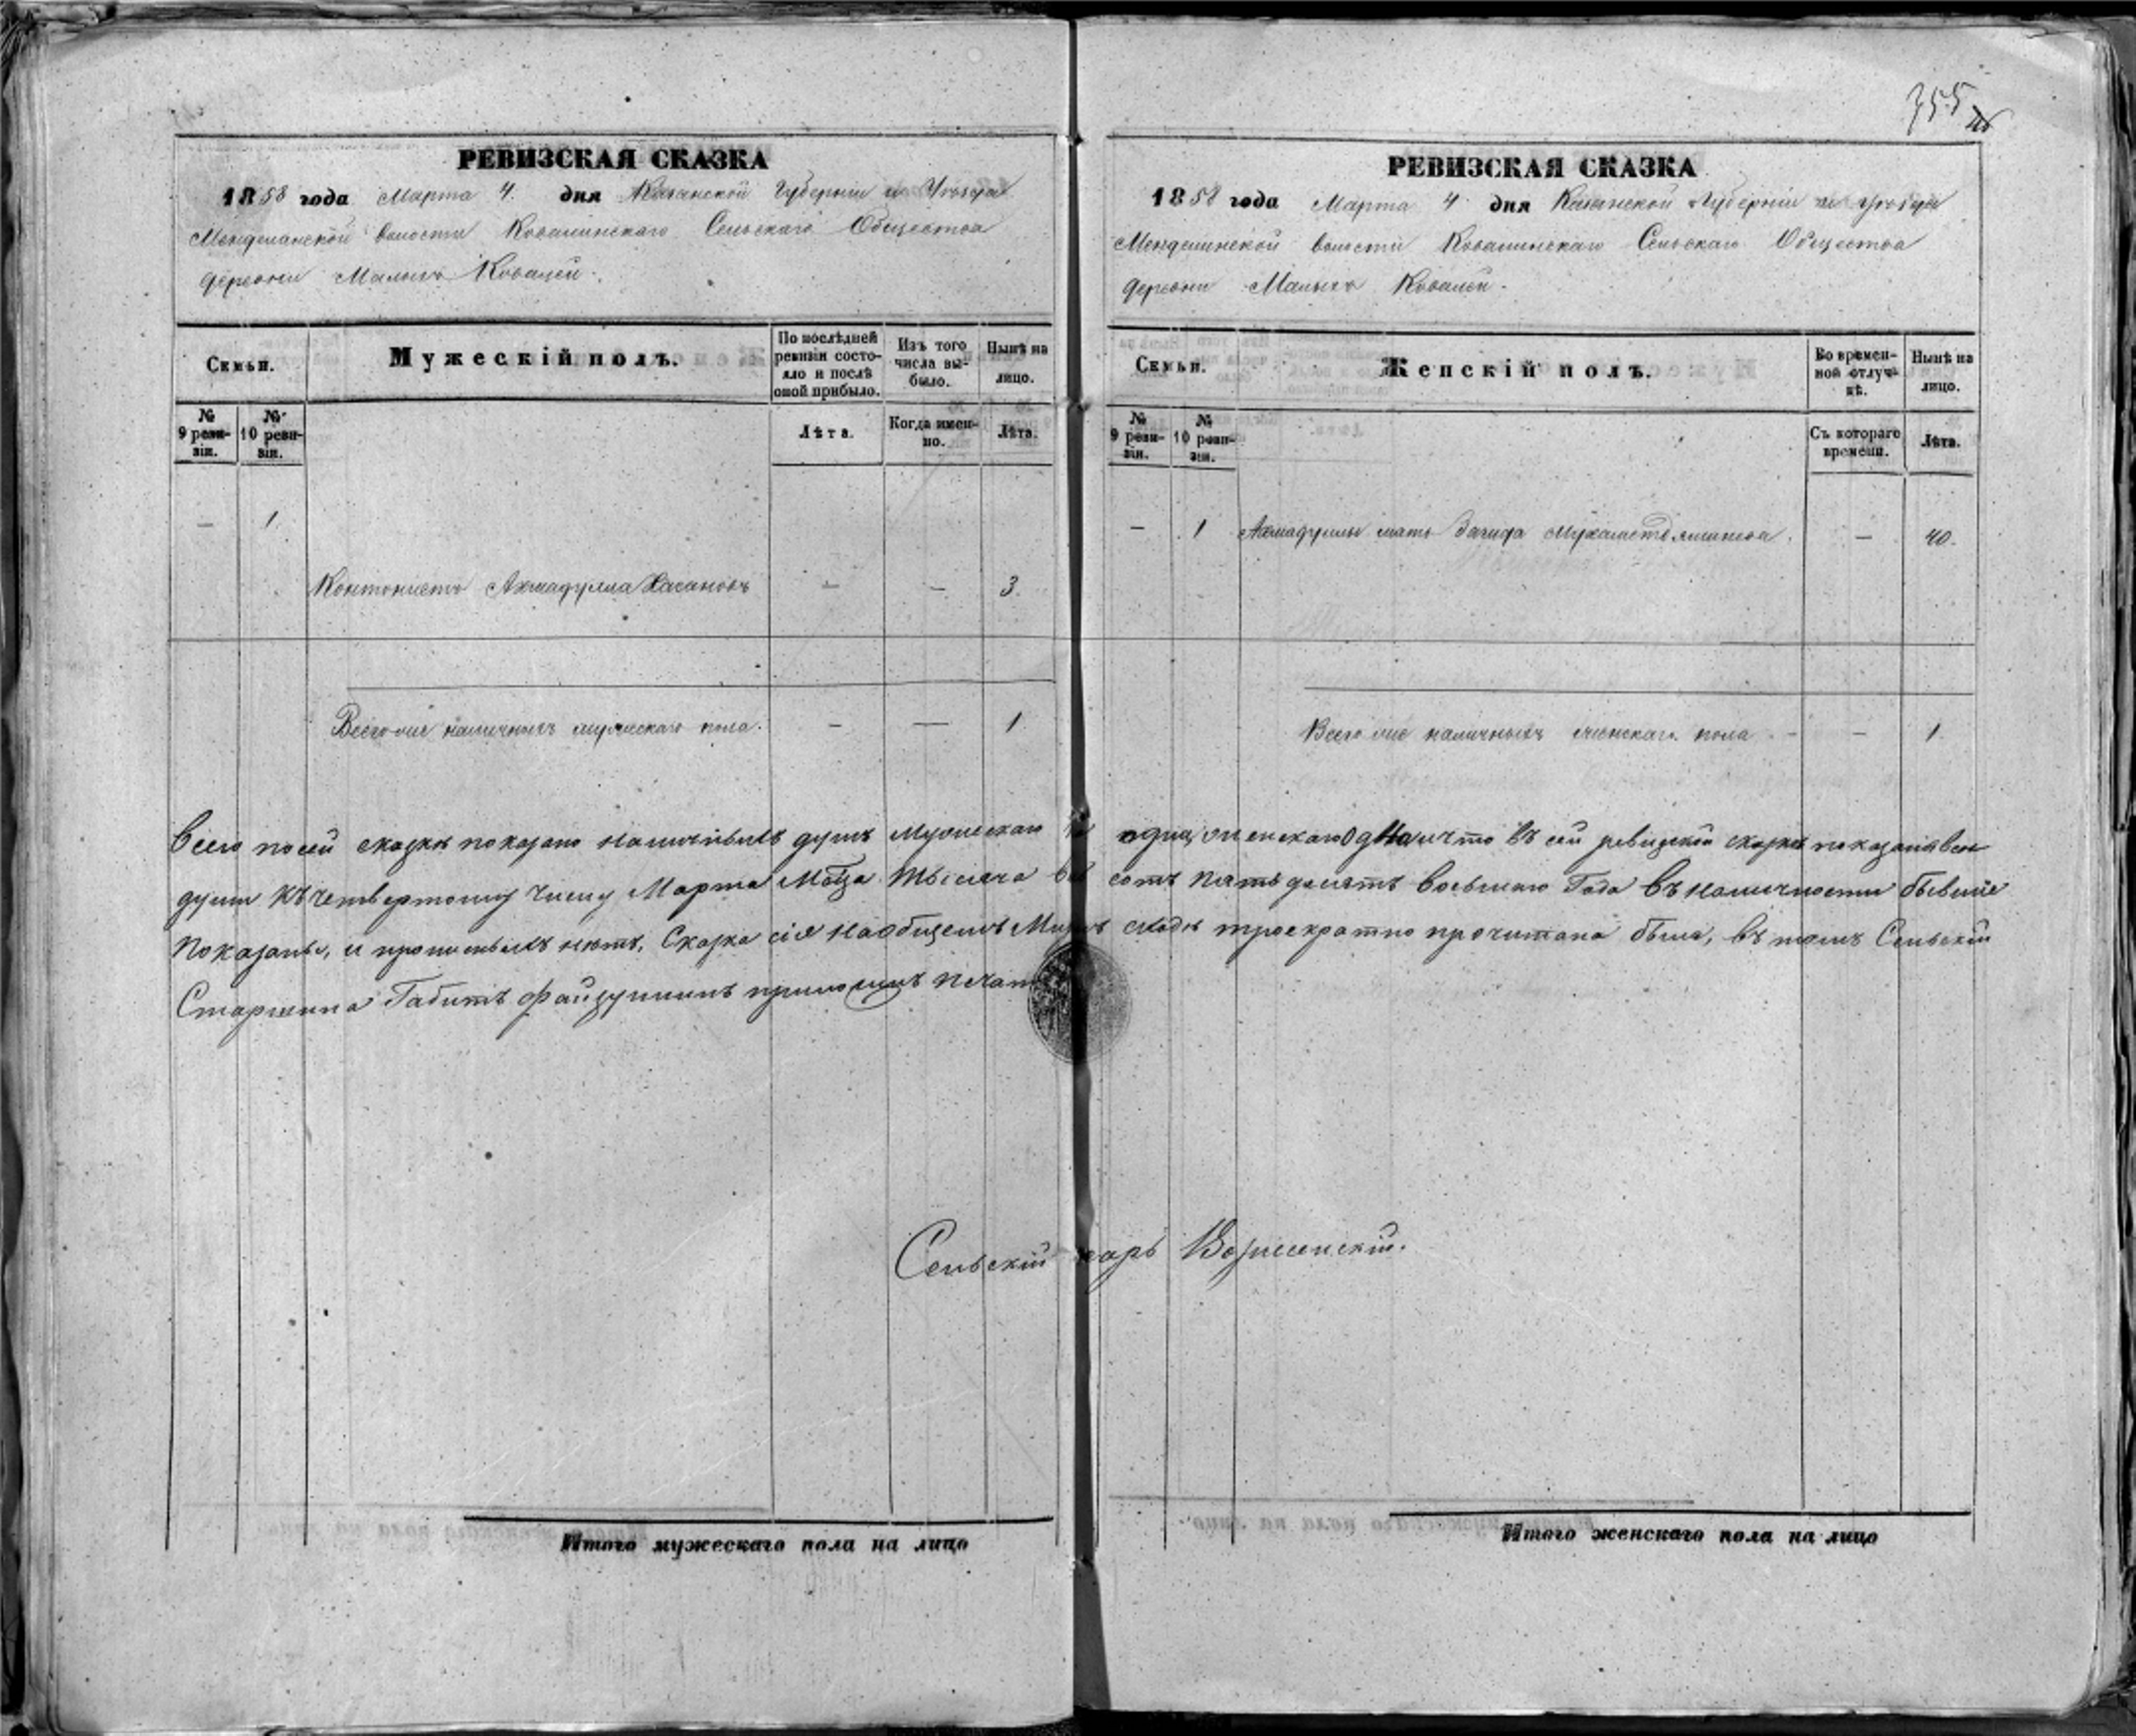 755
РЕВИЗСКАЯ СКАЗКА
1858 года Марта 4. дня Казанской Губерніи и Уѣзда
волости Ковалинскаго Сельскаго Общества
деревни Малыхъ Ковалей.
Семьи.
Мужескій полъ.
По послѣдней ревизіи состояло и послѣ оной прибыло.
Изъ того числа выбыло.
Нынѣ на лицо.
№ 9 ревизіи.
№ 10 ревизіи.
Лѣта.
Когда именно.
Лѣта.
— 1
Кантонистъ Ахмадулла Хасановъ — — 3.
Всего наличныхъ мужескаго пола. — — 1
РЕВИЗСКАЯ СКАЗКА
1858 года Марта 4 дня Казанской Губерніи и Уѣзда
волости Ковалинскаго Сельскаго Общества
деревни Малыхъ Ковалей.
Семьи.
Женскій полъ.
Во временной отлучкѣ.
Нынѣ на лицо.
№ 9 ревизіи.
№ 10 ревизіи.
Съ котораго времени.
Лѣта.
— 1 Ахмадуллы мать Загида — 40.
Всего наличныхъ женскаго пола — — 1
Всего по сей сказкѣ показано наличныхъ душъ Мужескаго одна, женскаго Одна и что въ сей ревизской сказкѣ показаны все
души къ четвертому числу Марта Мѣсяца тысяча сотъ пятьдесятъ восьмаго Года въ наличности бывшіе
показаны, и прописныхъ нѣтъ, Сказка сія на общемъ сходѣ троекратно прочитана была, въ томъ Сельскій
Старшина Габитъ Файзуллинъ приложилъ печать
Сельскій
Итого мужескаго пола на лицо
Итого женскаго пола на лицо